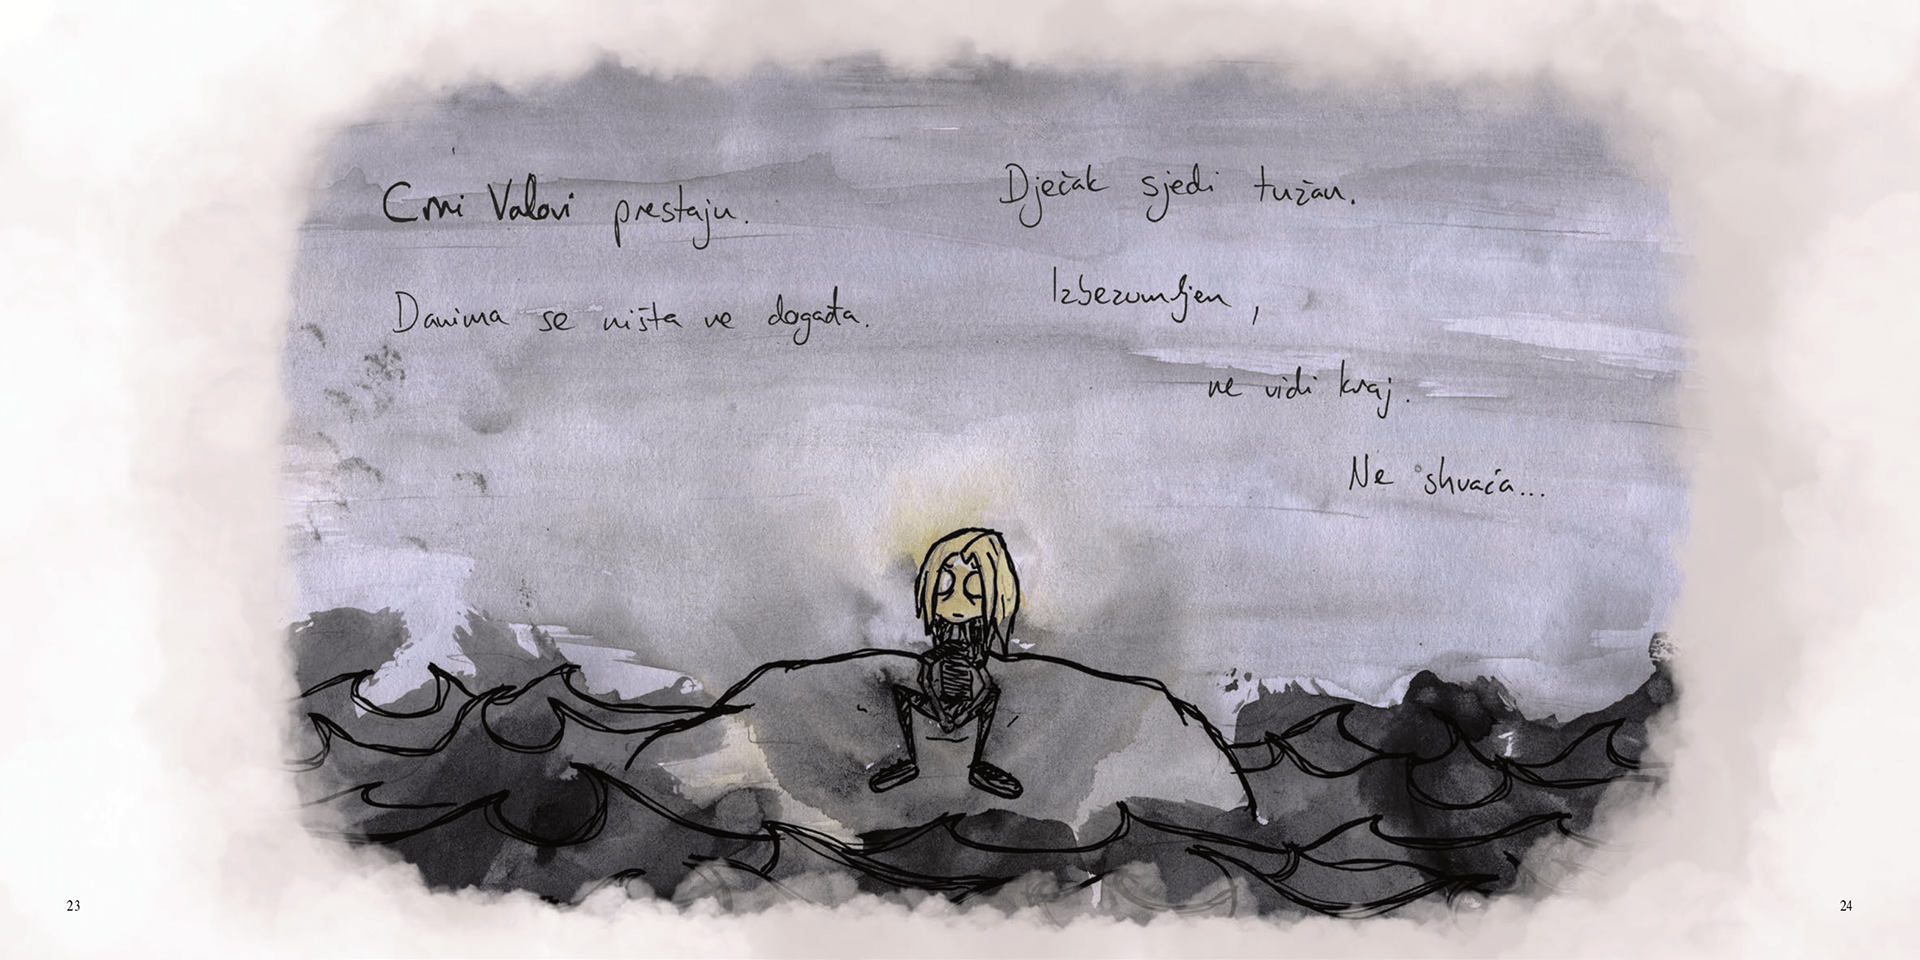 Crni Valovi prestaju.
Danima se ništa ne događa.
Dječak sjedi tužan.
Izbezumljen,
ne vidi kraj.
Ne shvaća...
23
24